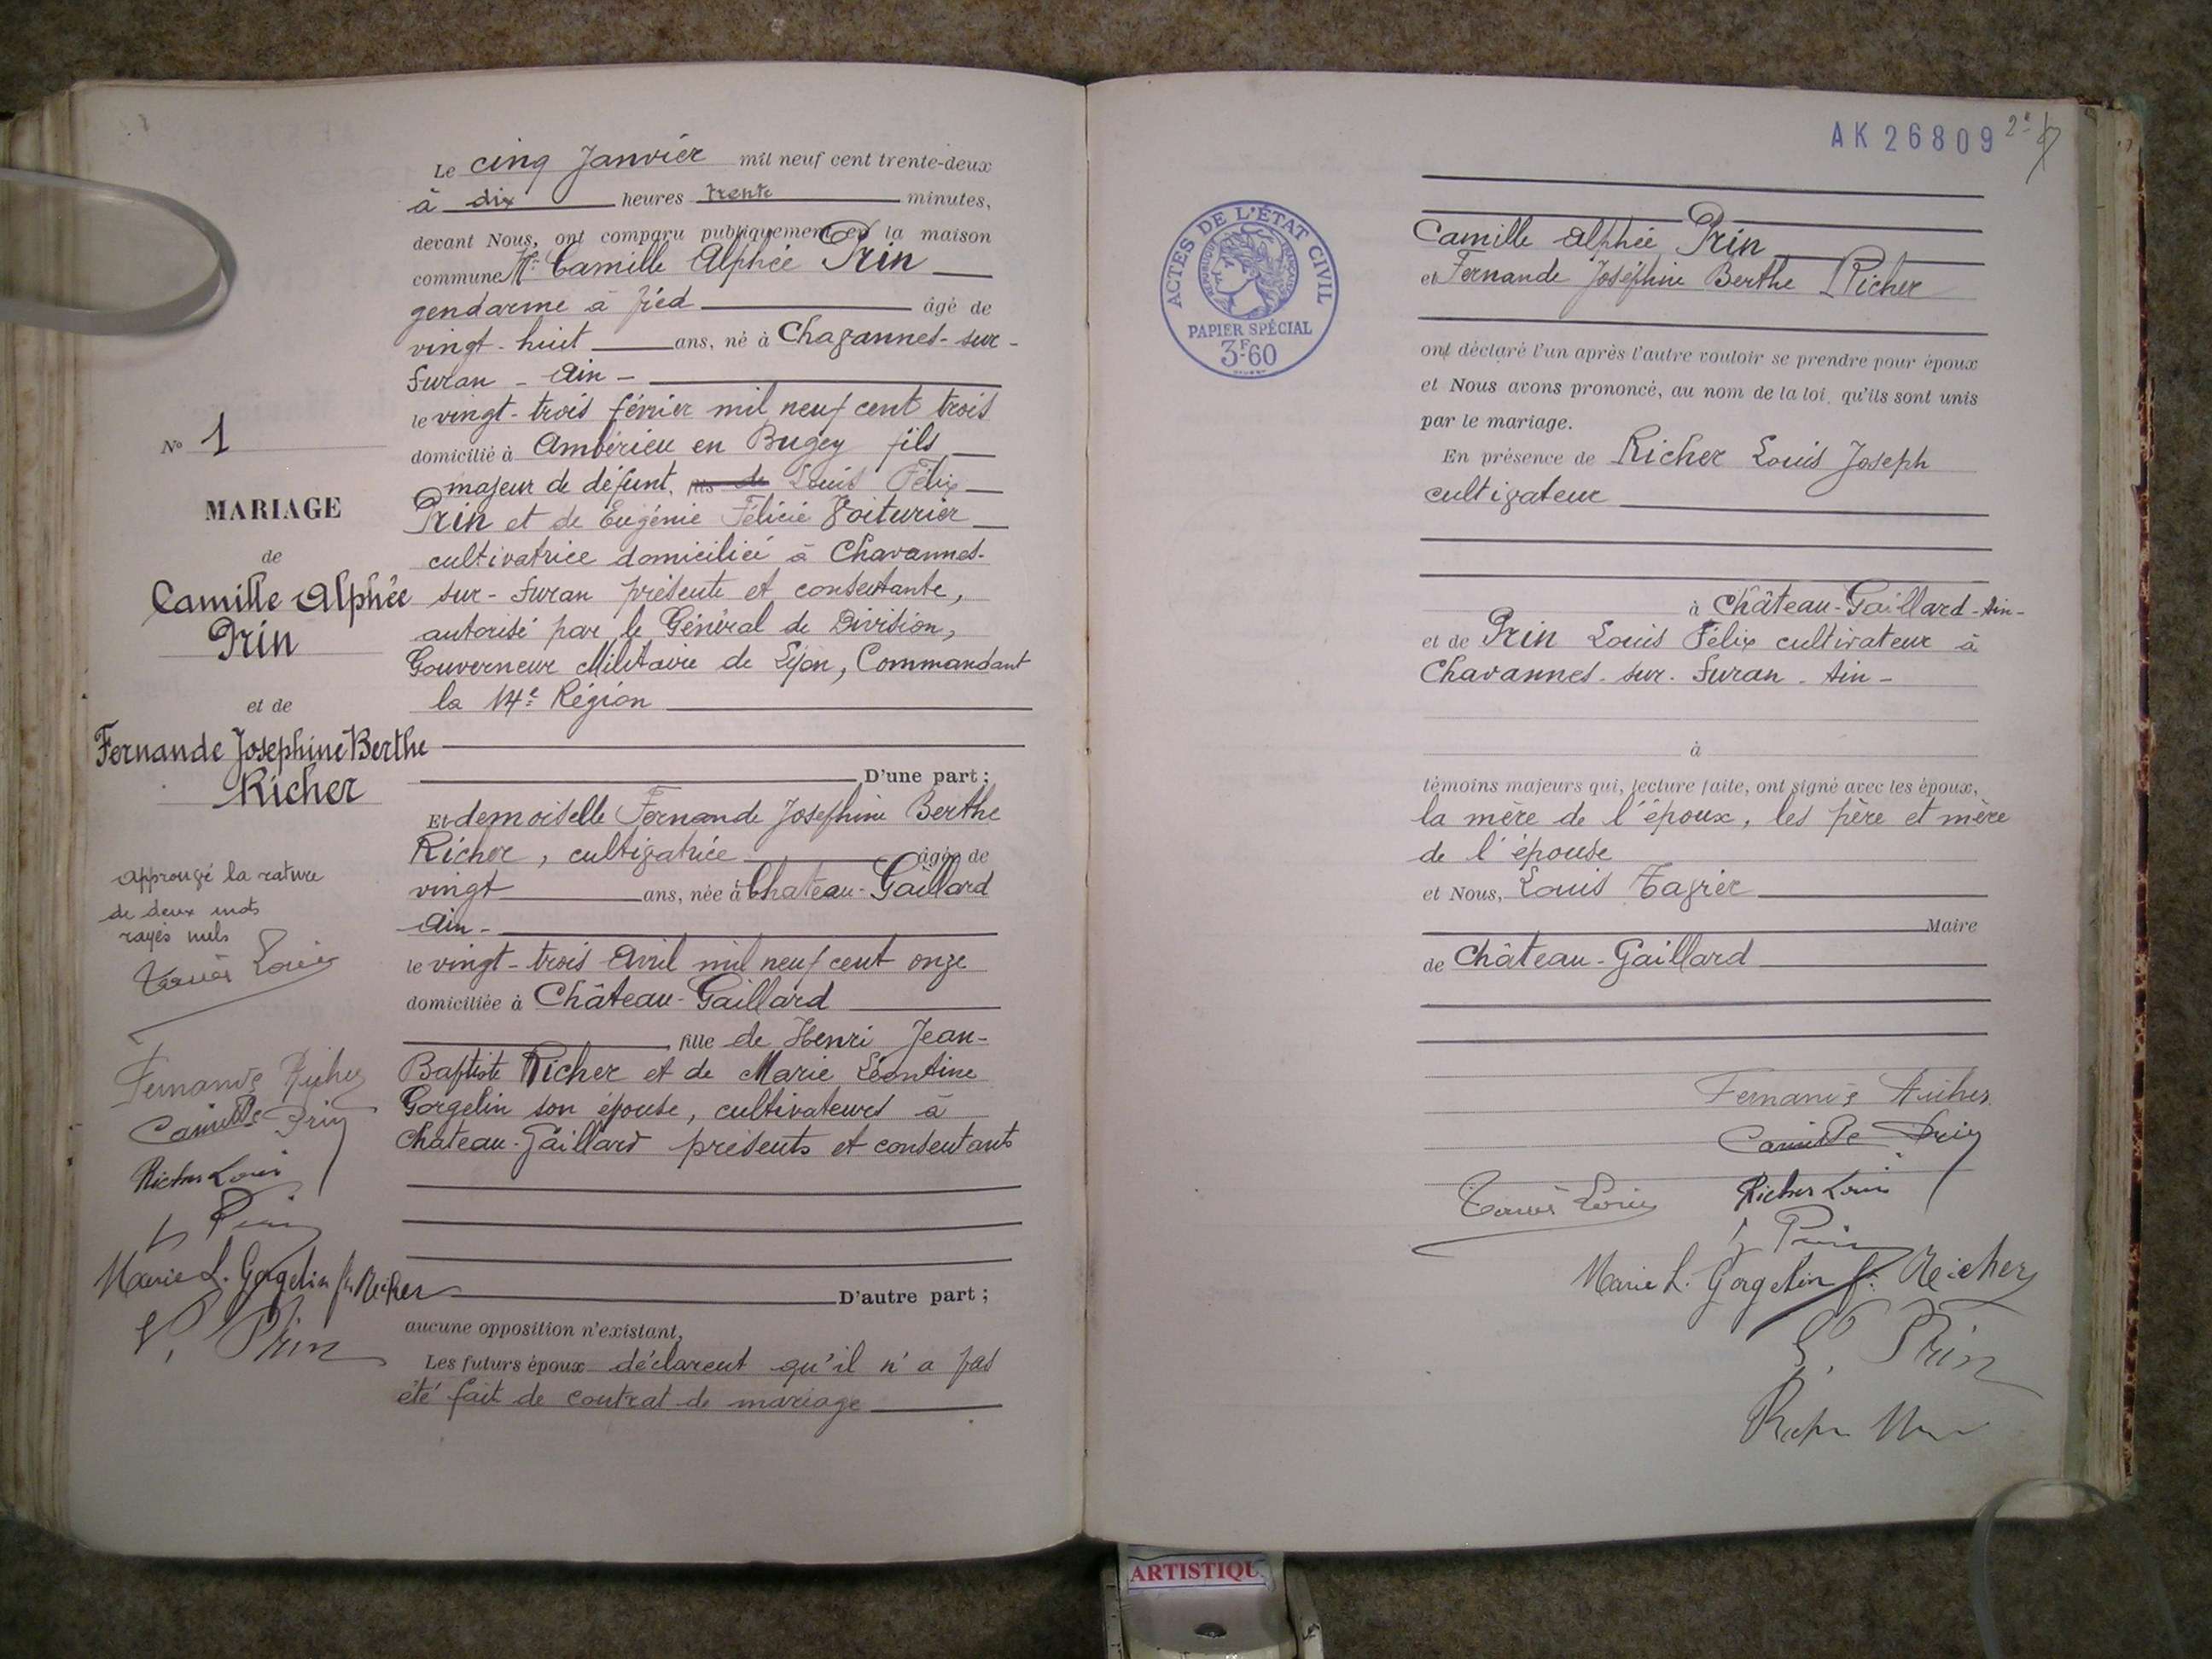 Le cinq Janvier mil neuf cent trente-deux
à dix heures trente minutes,
devant Nous, ont comparu publiquement en la maison
commune Mr Camille Alphée Prin
gendarme à pied âgé de
vingt-huit ans, né à Chavannes-sur-
Suran - Ain -
le vingt-trois février mil neuf cent trois
domicilié à Ambérieu en Bugey fils
majeur de défunt fils de Louis Félix
Prin et de Eugénie Félicie Voiturier
cultivatrice domiciliée à Chavannes-
sur-Suran présente et consentante,
autorisé par le Général de Division,
Gouverneur Militaire de Lyon, Commandant
la 14e Région
D'une part;
Et demoiselle Fernande Josephine Berthe
Richer, cultivatrice âgée de
vingt ans, née à Chateau-Gaillard
Ain -
le vingt-trois Avril mil neuf cent onze
domiciliée à Château-Gaillard
fille de Henri Jean-
Baptiste Richer et de Marie Léontine
Gorgelin son épouse, cultivateurs à
Chateau-Gaillard présents et consentants
D'autre part;
aucune opposition n'existant,
Les futurs époux déclarent qu'il n'a pas
été fait de contrat de mariage
No 1
MARIAGE
de
Camille Alphée
Prin
et de
Fernande Josephine Berthe
Richer
Approuvé la rature
de deux mots
rayés nuls
Louis
Fernande Richer
Camille Prin
Richer Louis
Prin
Marie L. Gorgelin f. Richer
Prin
AK 26809
ACTES DE L'ÉTAT CIVIL
RÉPUBLIQUE FRANÇAISE
PAPIER SPÉCIAL
3F60
Camille Alphée Prin
et Fernande Joséphine Berthe Richer
ont déclaré l'un après l'autre vouloir se prendre pour époux
et Nous avons prononcé, au nom de la loi, qu'ils sont unis
par le mariage.
En présence de Richer Louis Joseph
cultivateur
à Château-Gaillard - Ain -
et de Prin Louis Félix cultivateur à
Chavannes-sur-Suran - Ain -
à
témoins majeurs qui, lecture faite, ont signé avec les époux,
la mère de l'époux, les père et mère
de l'épouse
et Nous, Louis
Maire
de Château-Gaillard
Fernande Richer
Camille Prin
Louis
Richer Louis
Prin
Marie L. Gorgelin f. Richer
Prin
ARTISTIQU